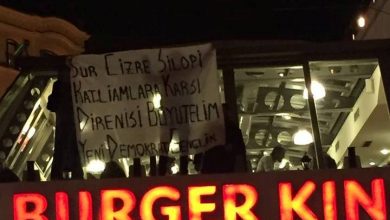 SUR CİZRE SİLOPİ
KATLİAMLARA KARŞI
DİRENİŞİ BÜYÜTELİM
YENİ DEMOKRATİK GENÇLİK
BURGER KIN